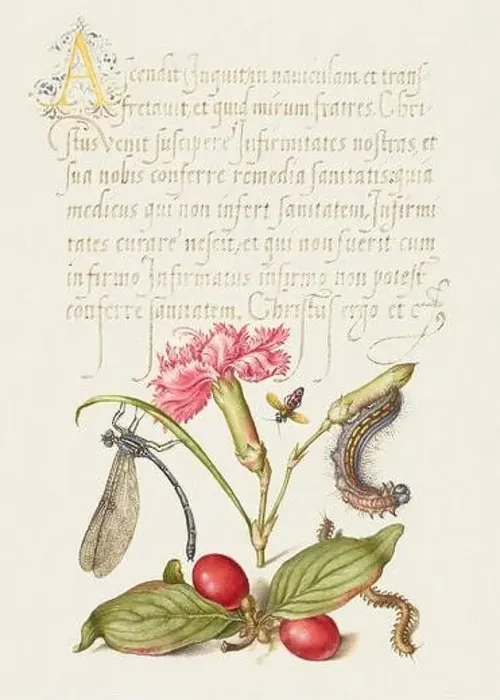 Ascendit Inquit in naviculam et trans-
fretavit, et quid mirum fratres. Chri-
stus venit suscipere Infirmitates nostras, et
sua nobis conferre remedia sanitatis: quia
medicus qui non infert sanitatem, Infirmi
tates curare nescit, et qui non fuerit cum
infirmo Infirmatus infirmo non potest
conferre sanitatem, Christus ergo et c